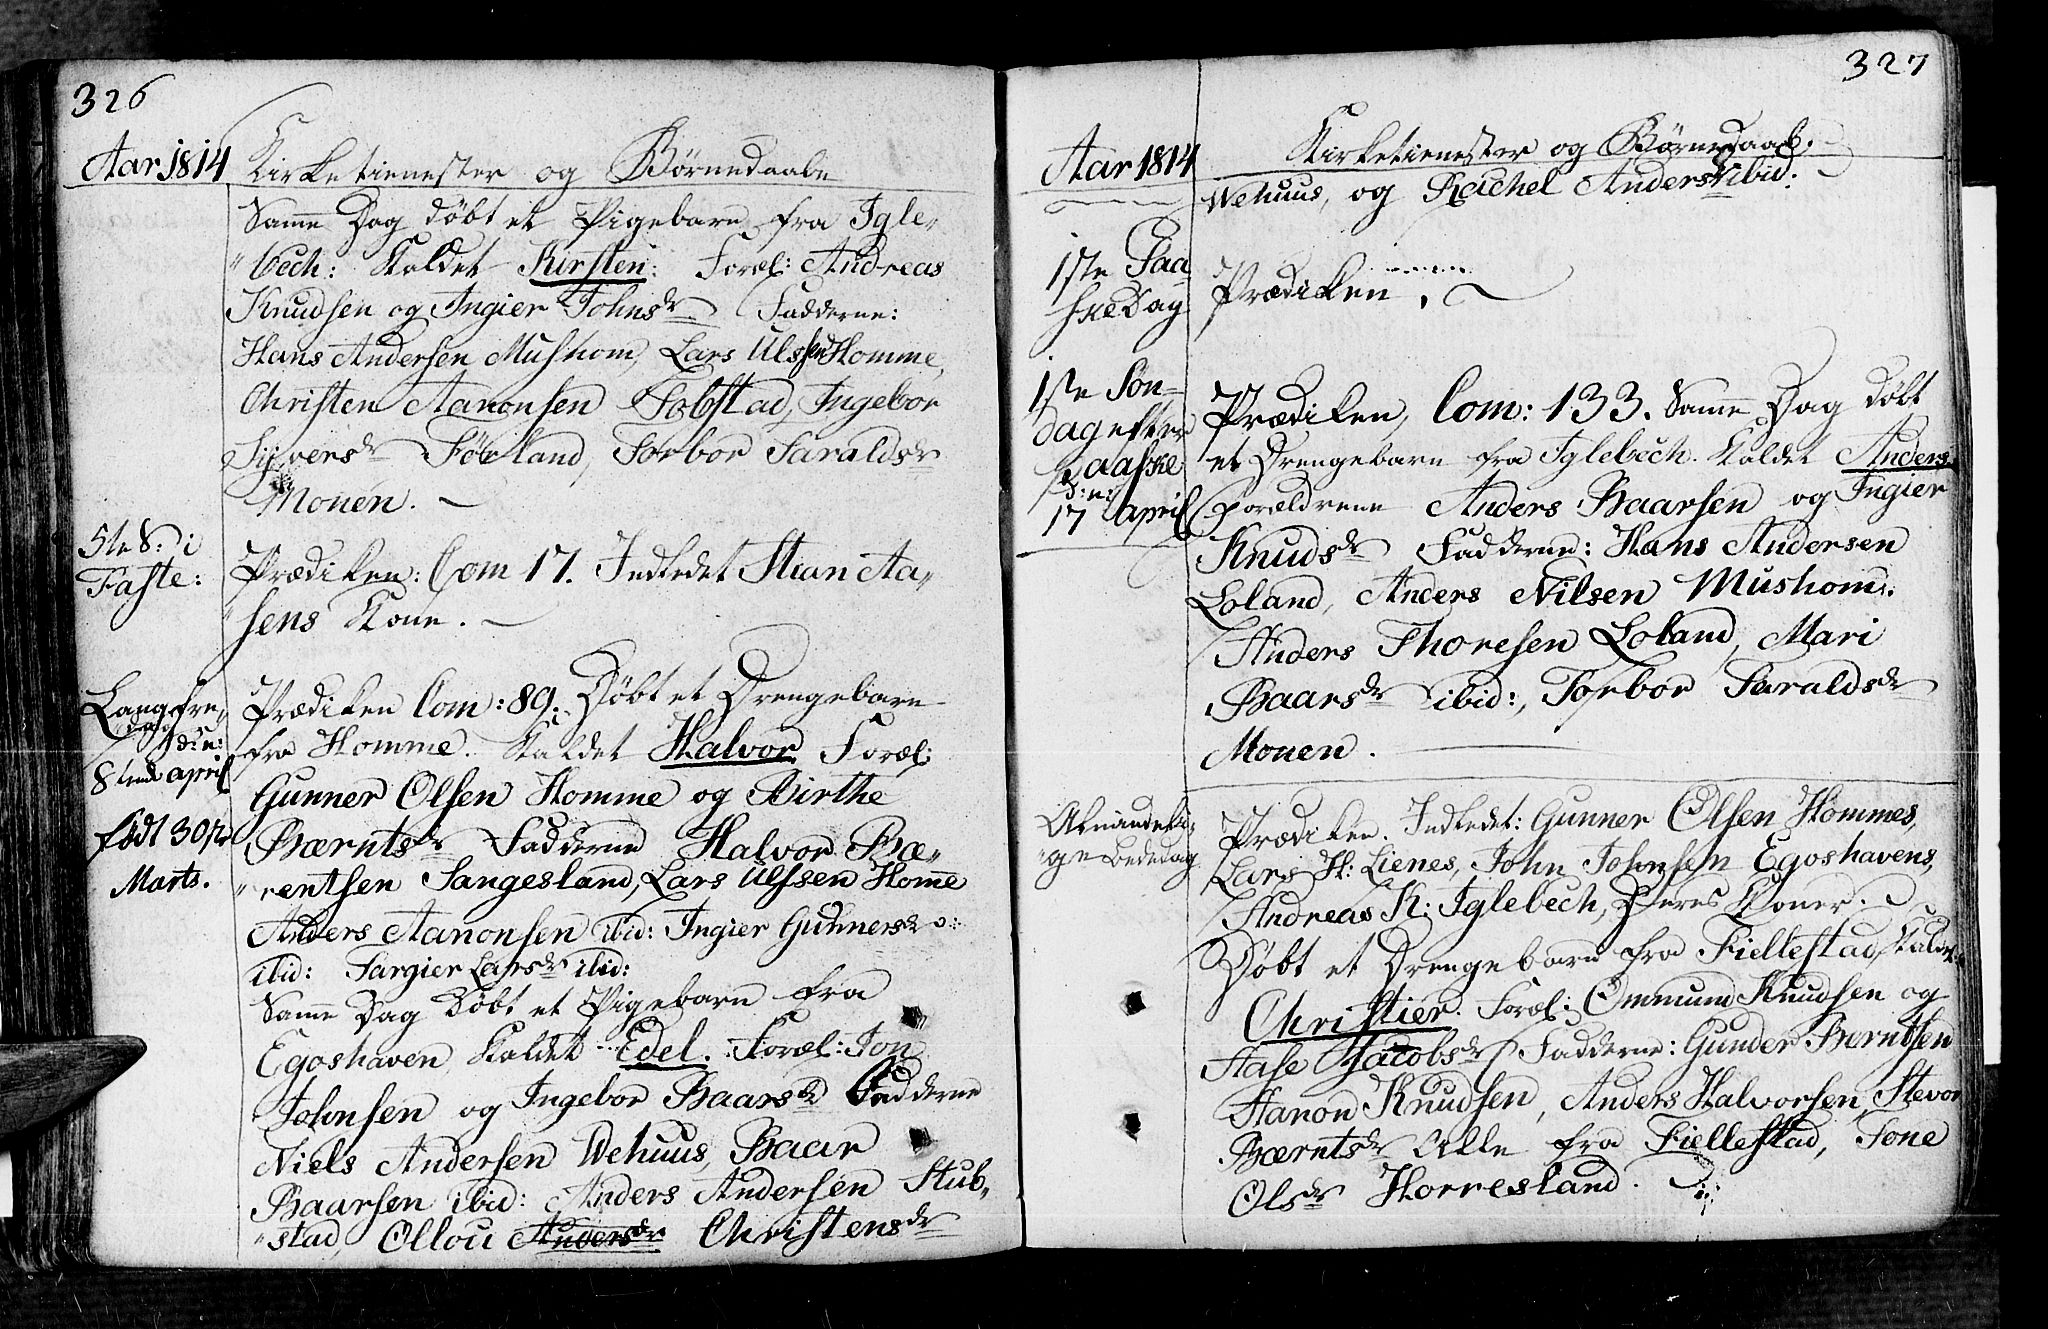 326
Aar 1814 Kirketienester og Börnedaabe
Samme Dag döbt et Pigebarn fra Igle-
bech: Kaldet Kirsten: Foræl: Andreas
Knudsen og Ingier Johnsdr Fadderne:
Hans Andersen Mushom, Lars Ulssen Homme,
Christen Aanonsen Stobstad, Ingebor
Syversdr Förland, Torbor Taraldsdr
Monen.
5te S: i
Faste: Prædiken: Com 17. Indledet Stian Aa-
sens Kone.
Langfre-
dag
d: e:
8tende april
födt 30te
Marts.
Prædiken Com: 89. Döbt et Drengebarn
fra Homme. Kaldet Halvor Foræl:
Gunner Olsen Homme og Birthe
Bærntsdr Fadderne Halvor Bæ-
rentsen Sangesland, Lars Ulssen Homme
Anders Aanonsen ibid: Ingier Gunnersdr
ibid: Targier Larsdr ibid:
Samme Dag döbt et Pigebarn fra
Egoshaven, Kaldet Edel. Foræl: Jon
Johnsen og Ingebor Baarsdr Fadderne
Niels Andersen Wehuus, Baar
Baarsen ibid: Anders Andersen Stub-
stad, Ollou Andersdr Christensdr
327
Aar 1814 Kirketienester og Börnedaab.
Wehuus, og Rachel Andersdr ibid:
1ste Paa
skeDag Prædiken.
1ste Søn-
dag efter
Paaske
d: e:
17 april
Prædiken, Com: 133. Samme Dag döbt
et Drengebarn fra Iglebech. Kaldet Anders.
Forældrene Anders Baarsen og Ingier
Knudsdr Fadderne: Hans Andersen
Loland, Anders Nilsen Mushom.
Anders Thoresen Loland, Mari
Baarsdr ibid:, Torbor Taraldsdr
Monen.
Almindeli-
ge Bededag
Prædiken. Indledet: Gunner Olsen Hommes,
Lars H: Lienes, John Johnsen Egoshavens,
Andreas K: Iglebech, Deres Koner.
Döbt et Drengebarn fra Fiellestad, Kaldet
Christier. Foræl: Ommund Knudsen og
Aase Jacobsdr Fadderne: Gunder Berntsen
Aanon Knudsen, Anders Halvorsen, Stevor
Bærntsdr Alle fra Fiellestad, Tone
Olsdr Horresland.